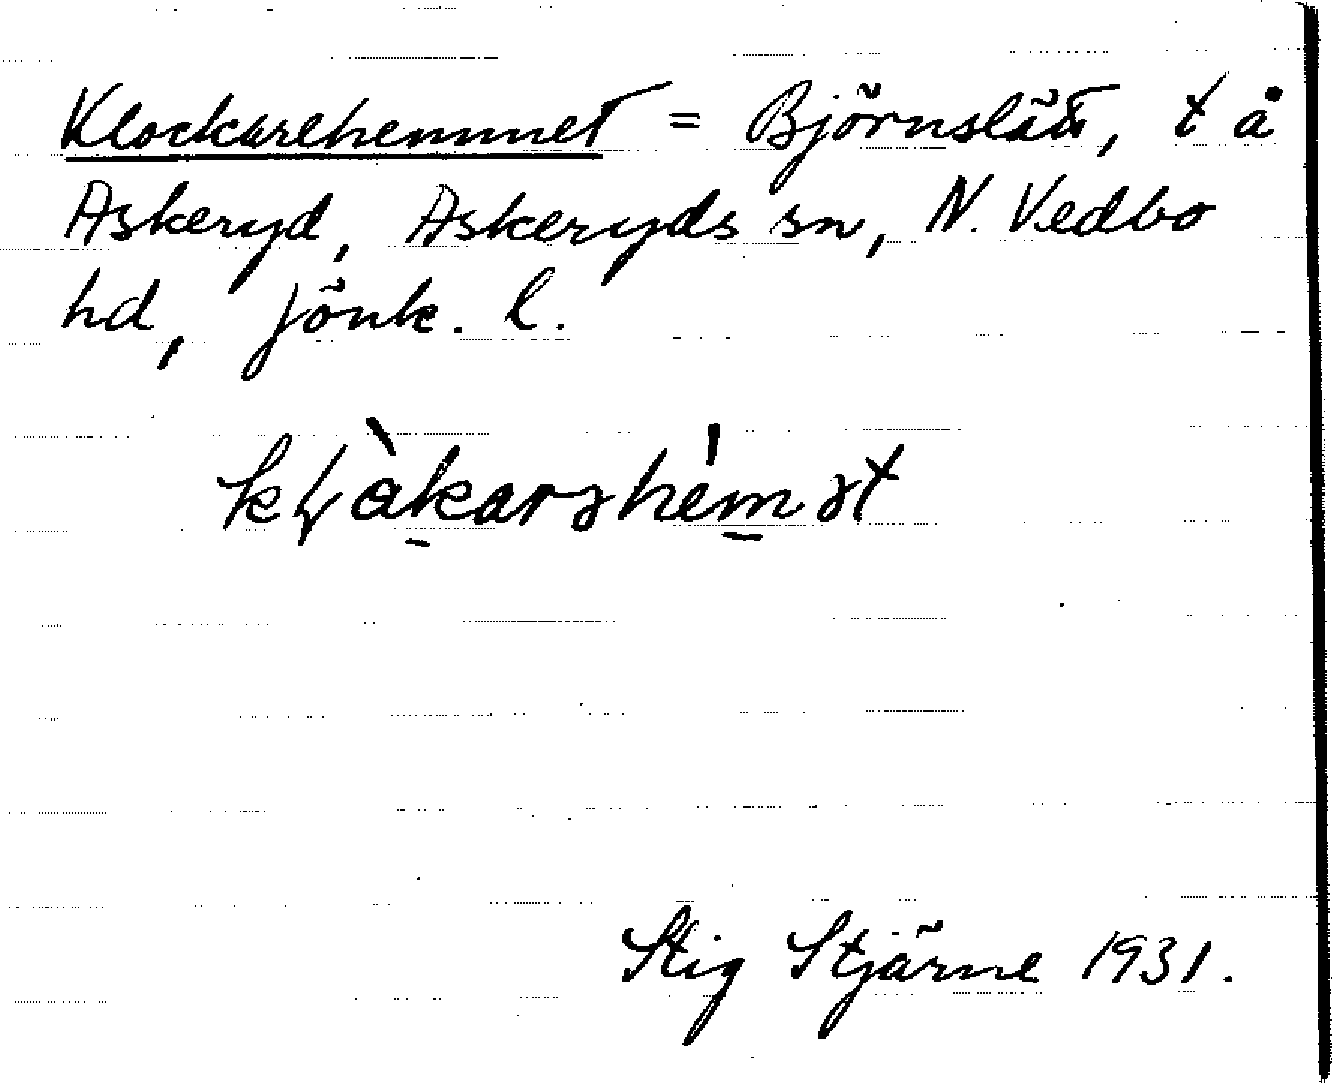 Klockarehemmet = Björnslätt, t å
Askeryd, Askeryds sn, N. Vedbo
hd, Jönk. l.
Stig Stjärne 1931.